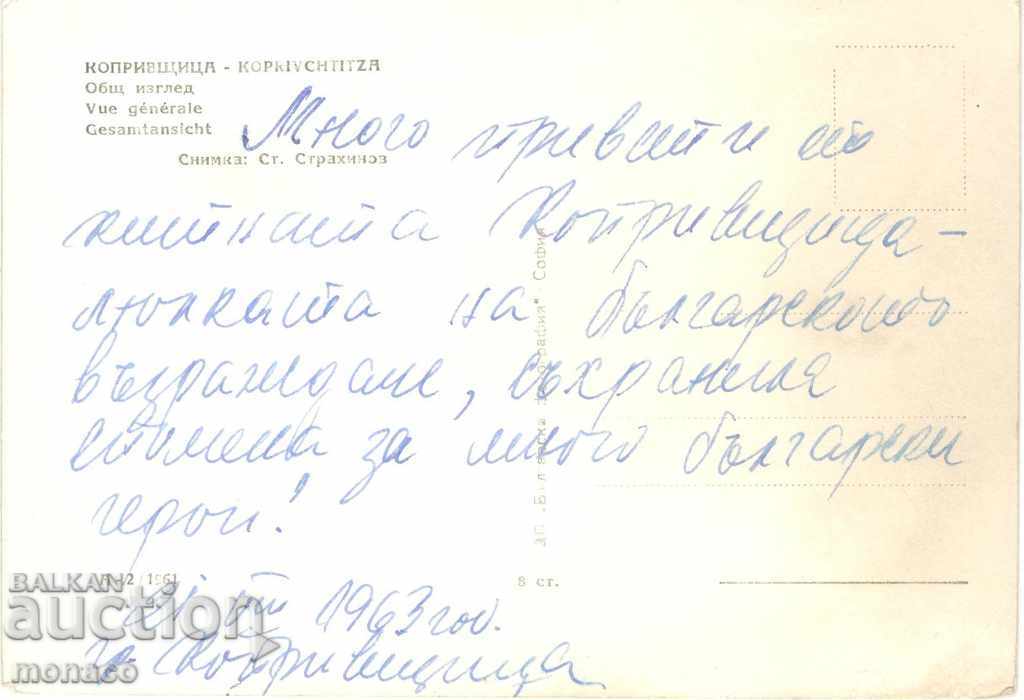 КОПРИВЩИЦА - KOPRIVCHTITZA
Общ изглед
Vue générale
Gesamtansicht
Снимка: Ст. Страхинов
Много привети от
китната Копривщица -
люлката на българското
възраждане, съхранила
спомена за много български
герои!
1963 год.
Копривщица
ДП „Българска фотография" - София
2/1961
8 ст.
BALKAN
auction
monaco